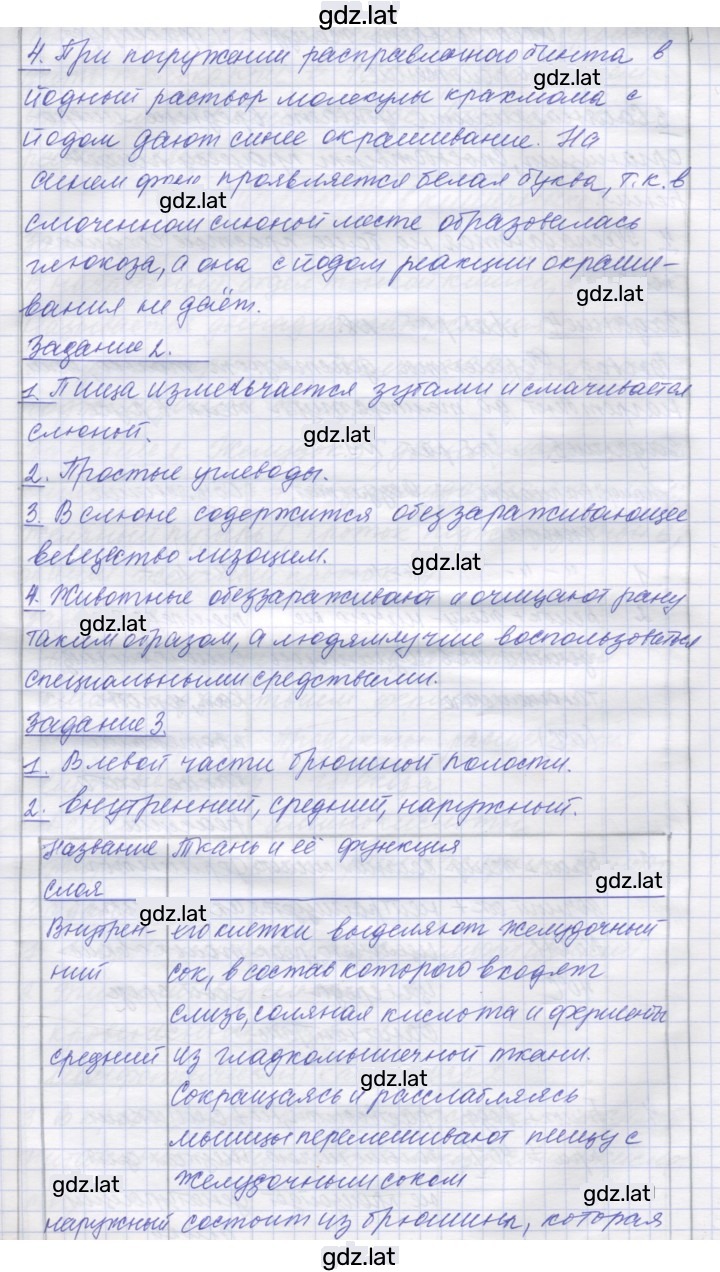 gdz.lat
4. При погружении расправленного бинта в
gdz.lat
йодный раствор молекулы крахмала с
йодом дают синее окрашивание. На
синем фоне проявляется белая буква, т.к. в
gdz.lat
смоченном слюной месте образовалась
глюкоза, а она с йодом реакции окраши-
gdz.lat
вания не даёт.
Задание 2.
1. Пища измельчается зубами и смачивается
слюной.
gdz.lat
2. Простые углеводы.
3. В слюне содержится обеззараживающее
вещество лизоцим.
gdz.lat
4. Животные обеззараживают и очищают рану
gdz.lat
таким образом, а людям лучше воспользоваться
специальными средствами.
Задание 3.
1. В левой части брюшной полости.
2. внутренний, средний, наружный.
Название Ткань и её функция
слоя
gdz.lat
gdz.lat
Внутрен- его клетки выделяют желудочный
ний сок, в состав которого входят
слизь, соляная кислота и ферменты
средний из гладкомышечной ткани.
gdz.lat
Сокращаясь и расслабляясь
мышцы перемешивают пищу с
желудочным соком
gdz.lat
gdz.lat
наружный состоит из брюшины, которая
gdz.lat